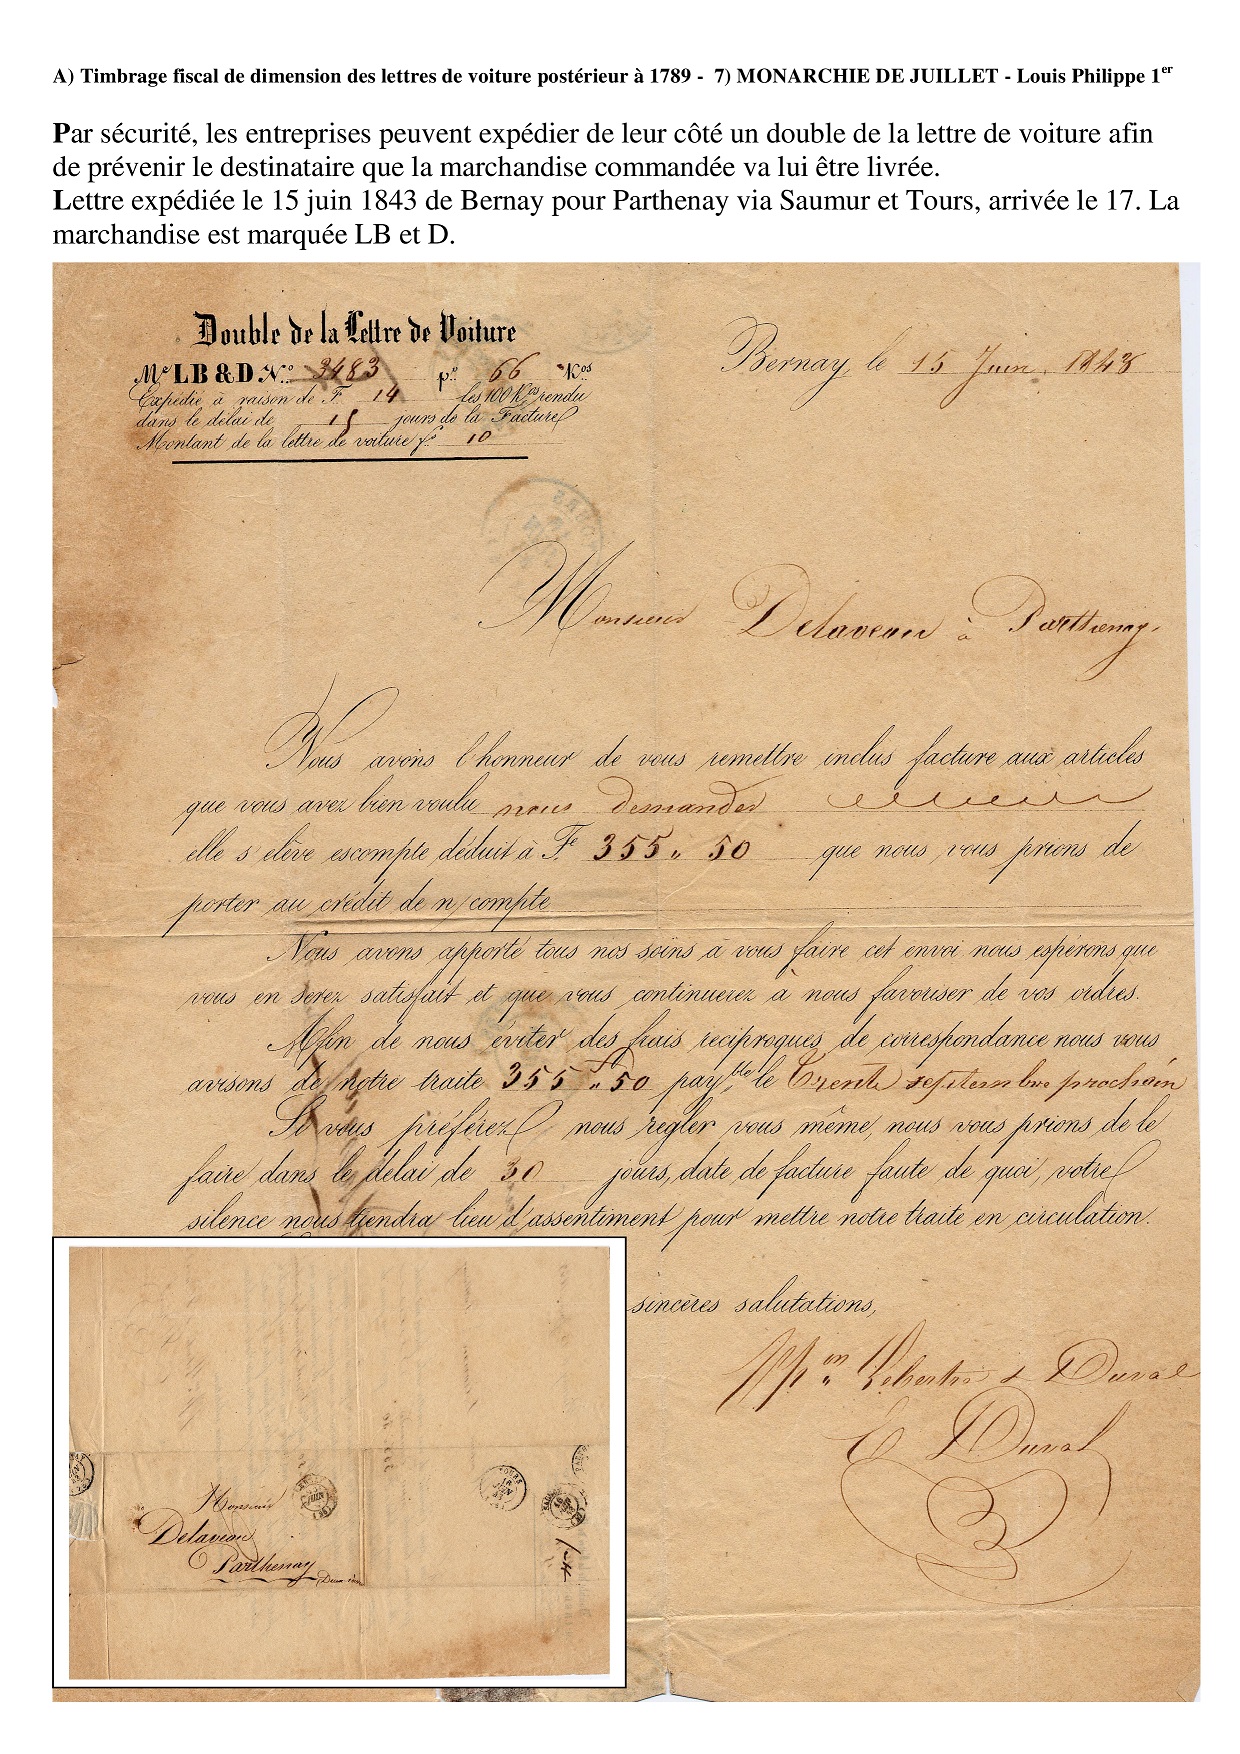 A) Timbrage fiscal de dimension des lettres de voiture postérieur à 1789 - 7) MONARCHIE DE JUILLET - Louis Philippe 1er
Par sécurité, les entreprises peuvent expédier de leur côté un double de la lettre de voiture afin
de prévenir le destinataire que la marchandise commandée va lui être livrée.
Lettre expédiée le 15 juin 1843 de Bernay pour Parthenay via Saumur et Tours, arrivée le 17. La
marchandise est marquée LB et D.
Double de la Lettre de Voiture
Me LB & D No. 3483 po. 66 Kos
Expédié à raison de F. 14 les 100 Kos rendu
dans le délai de 15 jours de la Facture
Montant de la lettre de voiture fs. 10
Bernay, le 15 Juin 1843
Monsieur Delaveau à Parthenay.
Nous avons l'honneur de vous remettre inclus facture aux articles
que vous avez bien voulu nous demander
elle s'elève escompte déduit à Fc 355 " 50 que nous vous prions de
porter au crédit de n/compte
Nous avons apporté tous nos soins à vous faire cet envoi nous espérons que
vous en serez satisfait et que vous continuerez à nous favoriser de vos ordres.
Afin de nous éviter des frais reciproques de correspondance nous vous
avisons de notre traite 355 " 50 payble le Trente septembre prochain
Si vous préférez nous regler vous même, nous vous prions de le
faire dans le délai de 30 jours, date de facture faute de quoi, votre
silence nous tiendra lieu d'assentiment pour mettre notre traite en circulation.
sincères salutations,
& Duval
E Duval
Monsieur
Delaveau
Parthenay
TOURS
JUIN